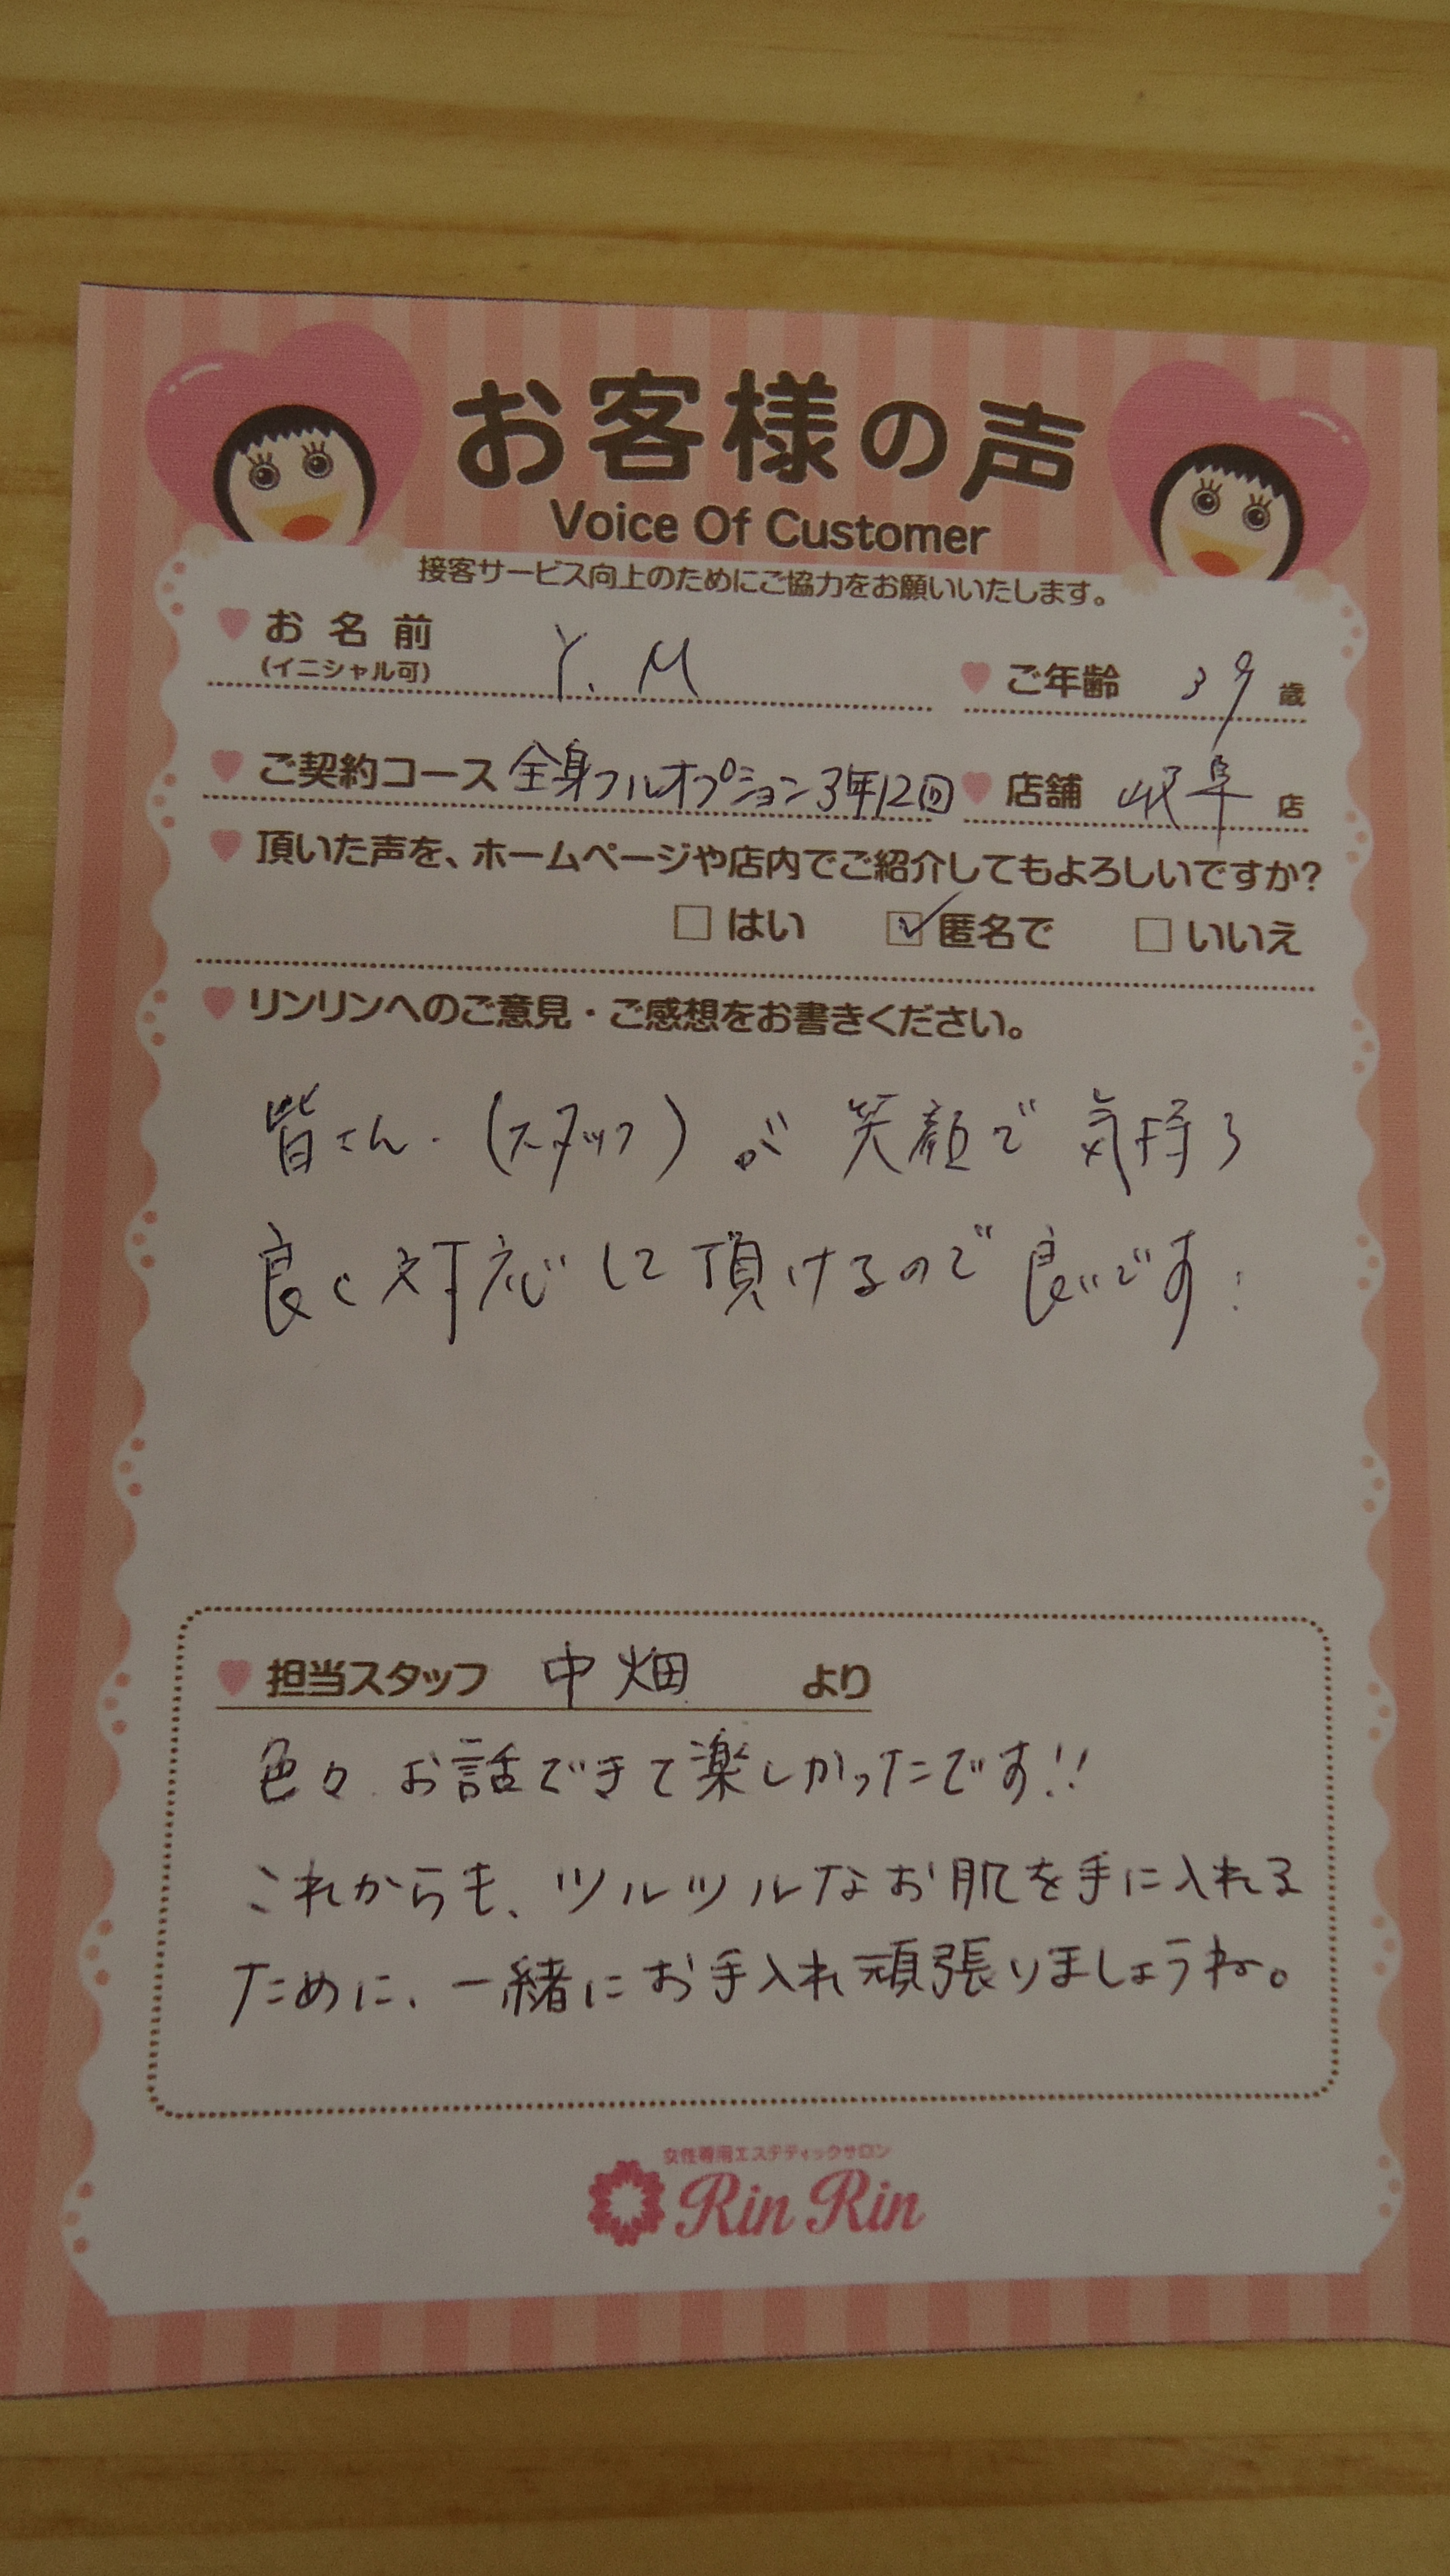 お客様の声
Voice Of Customer
接客サービス向上のためにご協力をお願いいたします。
お名前 Y. M ご年齢 39 歳
(イニシャル可)
ご契約コース 全身フルオプション3年12回 店舗 岐阜 店
頂いた声を、ホームページや店内でご紹介してもよろしいですか?
はい 匿名で いいえ
リンリンへのご意見・ご感想をお書きください。
皆さん.(スタッフ)が笑顔で気持ち
良く対応して頂けるので良いです!
担当スタッフ 中畑 より
色々お話できて楽しかったです!!
これからも、ツルツルなお肌を手に入れる
ために、一緒にお手入れ頑張りましょうね。
女性専用エステティックサロン
Rin Rin